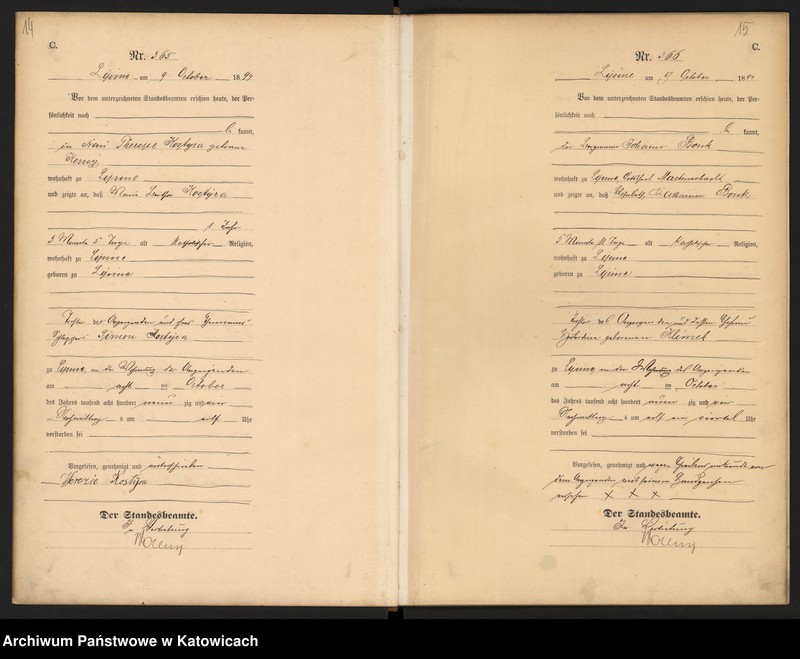 14
C.
Nr. 365
Lipine am 9 October 1894
Vor dem unterzeichneten Standesbeamten erschien heute, der Per-
sönlichkeit nach
kannt,
die Frau Therese Kostyra geborene
wohnhaft zu Lipine
und zeigte an, daß Marie Kostyra
1 Jahr
3 Monate 5 Tage alt katholischer Religion,
wohnhaft zu Lipine
geboren zu Lipine
Tochter der Anzeigenden und ihres Ehemannes
Simon Kostyra
zu Lipine in der Wohnung der Anzeigenden
am acht ten October
des Jahres tausend acht hundert neun zig und vier
Nachmittags um Uhr
verstorben sei
Vorgelesen, genehmigt und unterschrieben
Kostyra
Der Standesbeamte.
In Vertretung
15
C.
Nr. 366
Lipine am 9 October 1894
Vor dem unterzeichneten Standesbeamten erschien heute, der Per-
sönlichkeit nach
kannt,
der Johann Bonk
wohnhaft zu Lipine
und zeigte an, daß Bonk
5 Monate 11 Tage alt katholischer Religion,
wohnhaft zu Lipine
geboren zu Lipine
Tochter des Anzeigenden und dessen Ehefrau
geborenen
zu Lipine in der Wohnung des Anzeigenden
am acht ten October
des Jahres tausend acht hundert neun zig und vier
Nachmittags um elf ein viertel Uhr
verstorben sei
Vorgelesen, genehmigt und wegen
dem Anzeigenden mit seinem Handzeichen
versehen X X X
Der Standesbeamte.
In Vertretung
Archiwum Państwowe w Katowicach